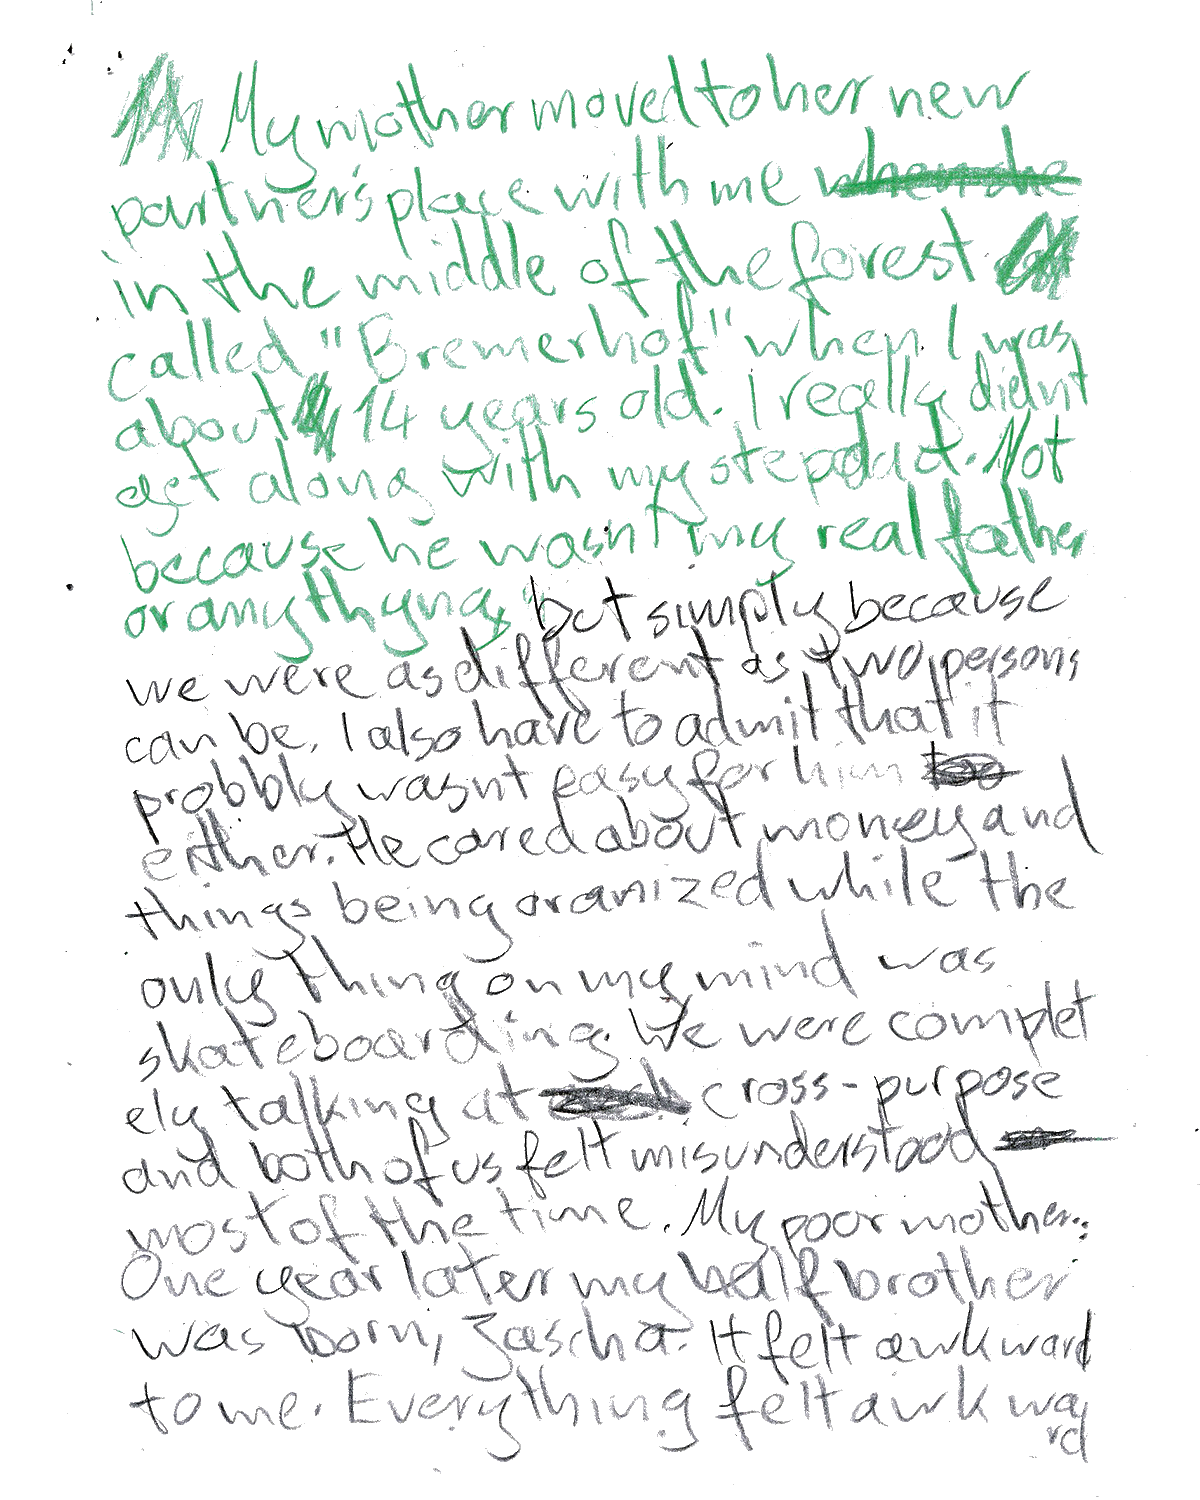 My mother moved to her new
partner's place with me when she
in the middle of the forest
called "Bremerhof" when I was
about 14 years old. I really didn't
get along with my stepdad. Not
because he wasn't my real father
or anythyng, but simply because
we were as different as two persons
can be. I also have to admit that it
probbly wasn't easy for him too
either. He cared about money and
things being oranized while the
only thing on my mind was
skateboarding. We were complet
ely talking at cross-purpose
and both of us felt misunderstood
most of the time. My poor mother..
One year later my half brother
was born, Zascha. It felt awkward
to me. Everything felt awkwa
rd